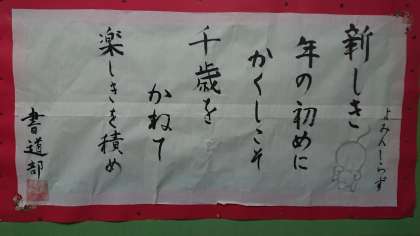 新しき
よみんしらず
年の初めに
かくしこそ
千歳を
かねて
楽しきを積め
書道部